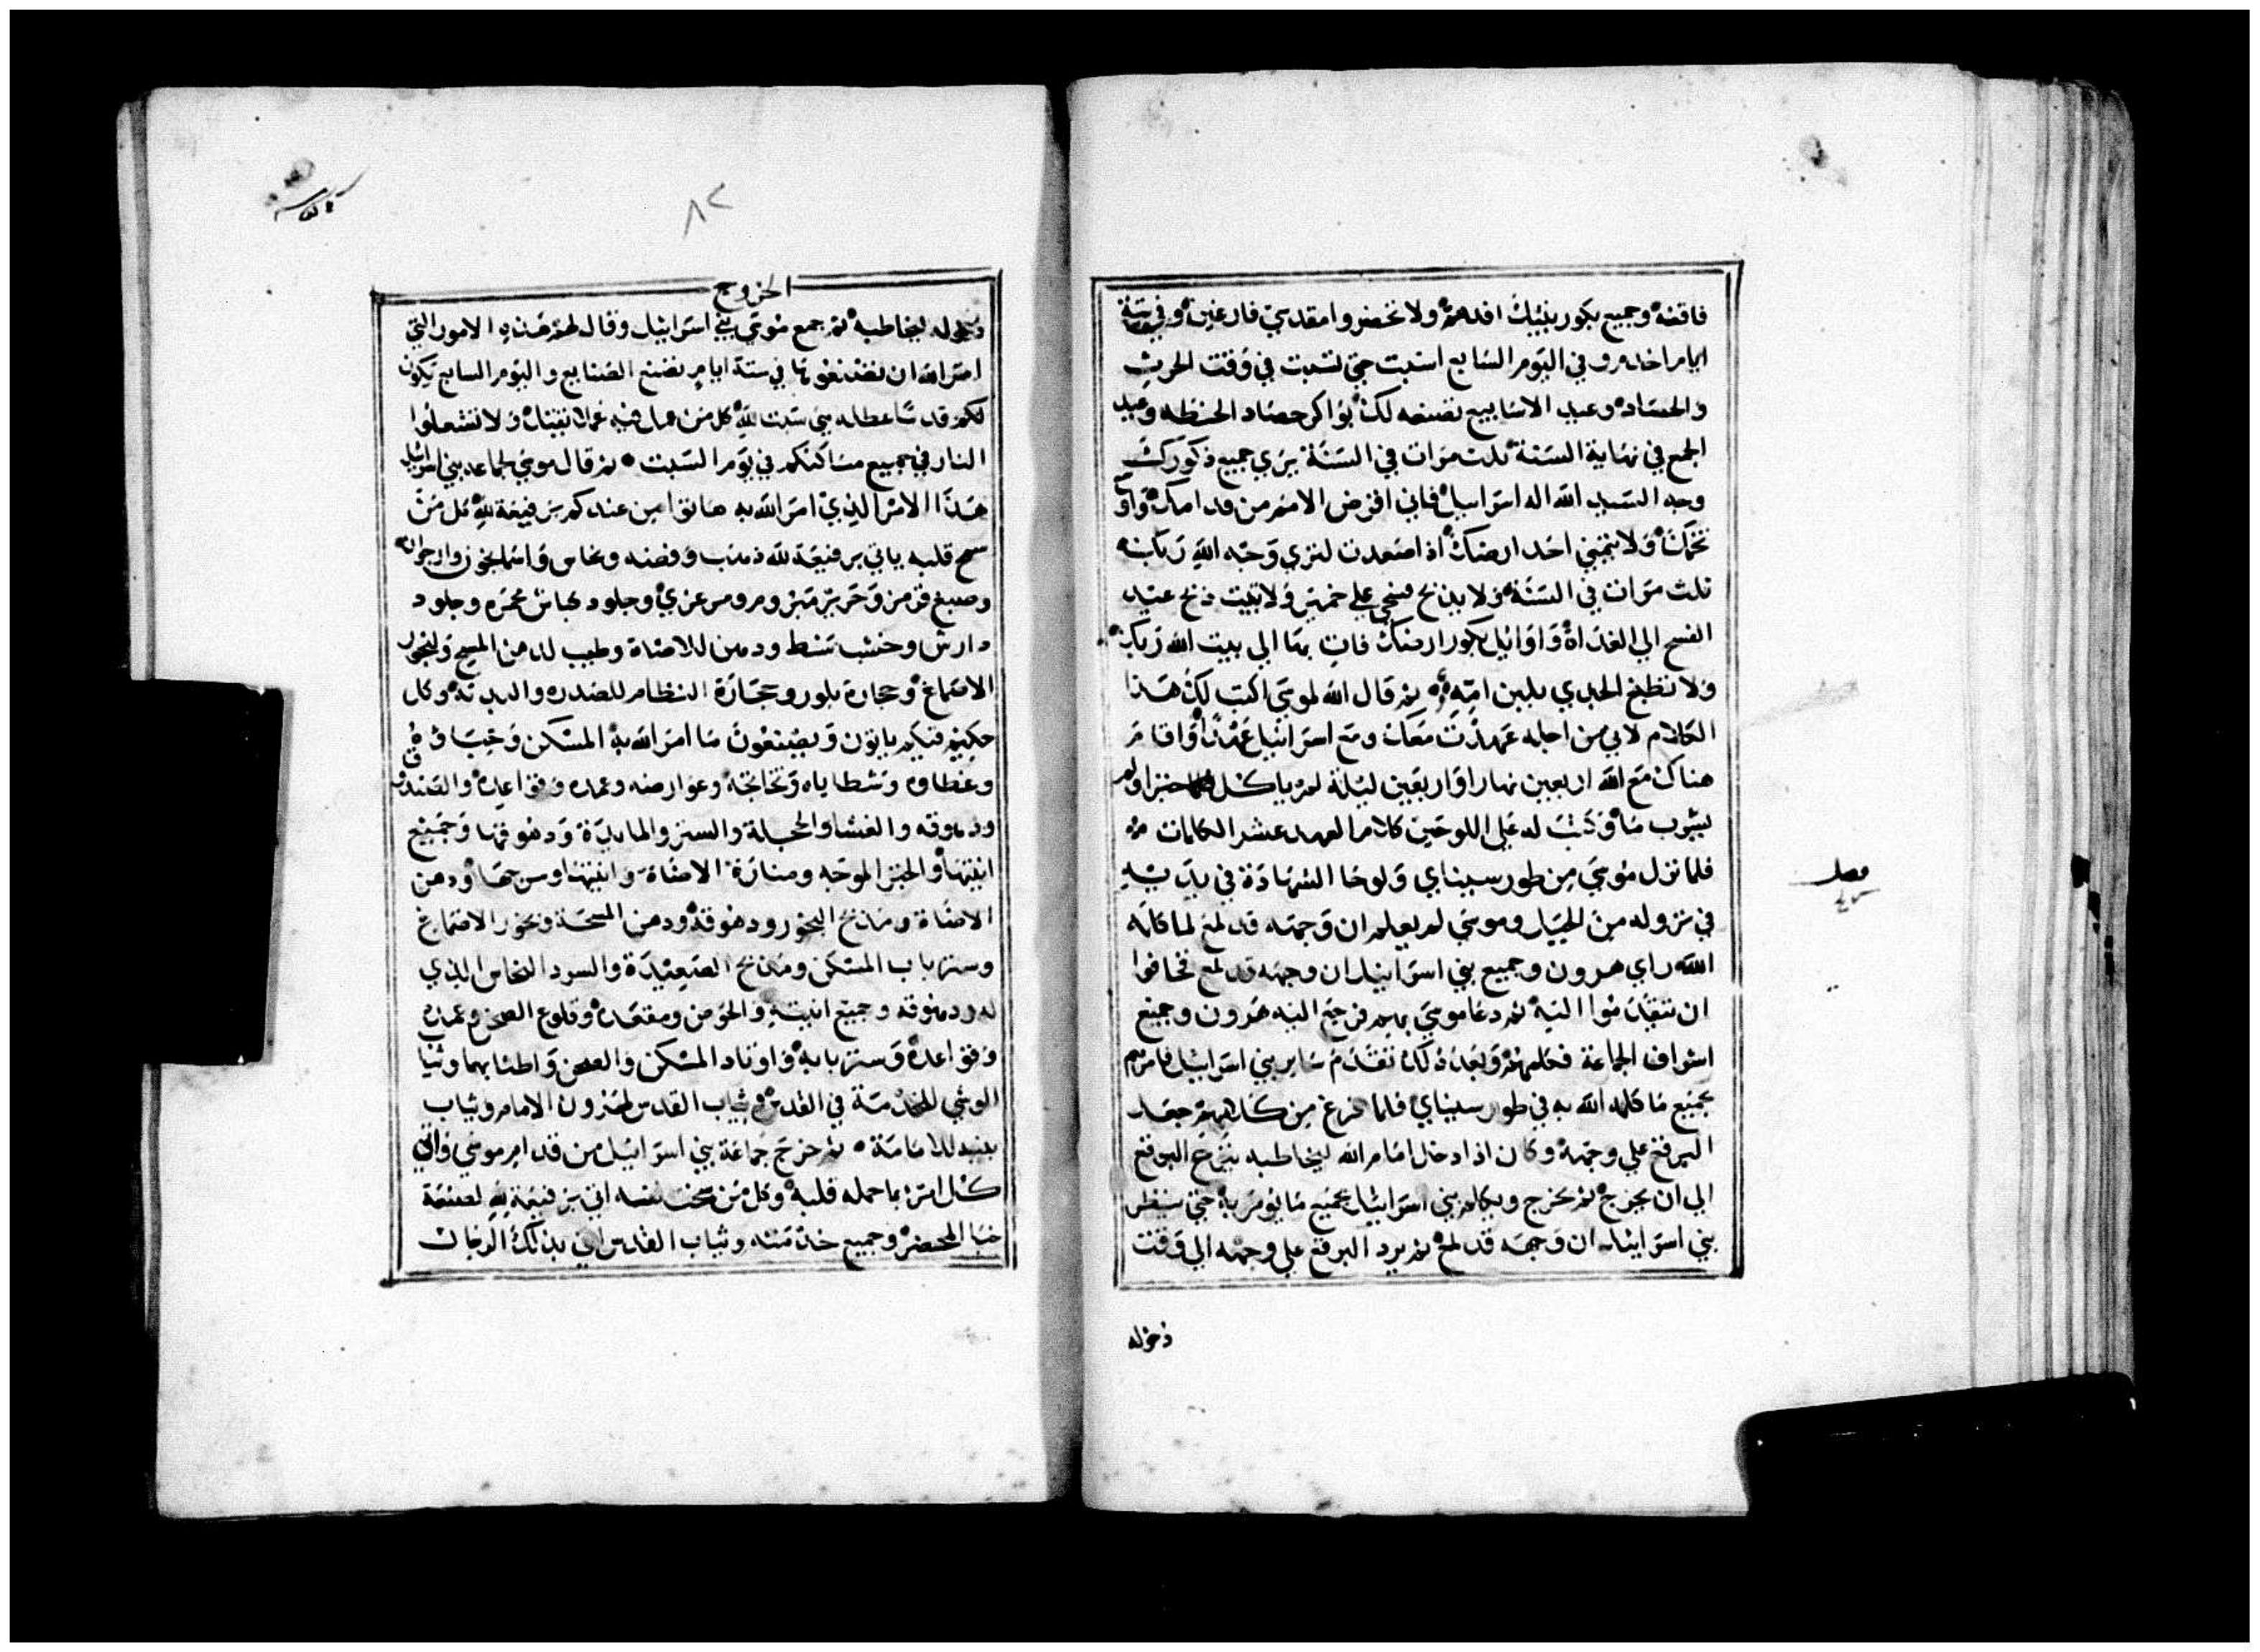 فاقفه وجميع بكور بنيك افدهم ولا تحضروا مقدسي فارغين وفي ستة
ايام اخدم وفي اليوم السابع اسبت حتي تسبت في وقت الحرث
والحصاد وعيد الاسابيع تصنعه لك بواكر حصاد الحنطه وعيد
الجمع في نهاية السنة ثلث مرات في السنة يري جميع ذكورك
وجه السيد الله اله اسراييل فاني اقرض الامم من قدامك واوسع
تخمك ولا يتمني احد ارضك اذا صعدت لتري وجه الله ربك
ثلث مرات في السنة ولا يذبح فسحي علي خمير ولا تبيت ذبح عيد
الفسح الي الغداة واوايل بكور ارضك فات بها الي بيت الله ربك
ولا تطبخ الجدي بلبن امه ثم قال الله لموسي اكتب لك هذا
الكلام لاني من اجله عهدت معك ومع اسراييل عهدا واقام
هناك مع الله اربعين نهارا واربعين ليلة لم ياكل خبزا ولم
يشرب ما وكتب له علي اللوحين كلام العهد عشر الكلمات
فلما نزل موسي من طور سيناي ولوحا الشهادة في يديه
في نزوله من الجبل وموسي لم يعلم ان وجهه قد لمع لما كلمه
الله راي هرون وجميع بني اسراييل ان وجهه قد لمع فخافوا
ان يتقدموا اليه ثم دعا موسي بهم فرجع اليه هرون وجميع
اشراف الجماعة فكلمهم وبعد ذلك تقدم ساير بني اسراييل فامرهم
بجميع ما كلمه الله به في طور سيناي فلما فرغ من كلامهم جعل
البرقع علي وجهه وكان اذا دخل امام الله ليخاطبه ينزع البرقع
الي ان يخرج ثم يخرج ويكلم بني اسراييل بجميع ما يومر به حتي ينظر
بني اسراييل ان وجهه قد لمع ثم يرد البرقع علي وجهه الي وقت
دخوله
فصل
٨٢
الخروج
دخوله ليخاطبه ثم جمع موسي بني اسراييل وقال لهم هذه الامور التي
امر الله ان تصنعونها في ستة ايام تصنع الصنايع واليوم السابع يكون
لكم قدسا عطله سبت لله كل من عمل فيه عملا يقتل ولا تشعلوا
النار في جميع مساكنكم في يوم السبت ثم قال موسي لجماعه بني اسراييل
هذا الامر الذي امر الله به هاتوا من عندكم رفيعة لله كل من
سمح قلبه ياتي برفيعة لله ذهب وفضه ونحاس واسمانجون وارجوان
وصبغ قرمز وحرير وبز ومرعزي وجلود كباش محمره وجلود
دارش وخشب سنط ودهن للاضاة وطيب لدهن المسح ولبخور
الاصماغ وحجارة بلور وحجارة النظام للصدره والبدنة وكل
حكيم فيكم ياتون ويصنعون ما امر الله به المسكن وخباوه
وغطاوه وشظاياه وتخاتجه وعوارضه وعمده وقواعده والصندوق
ودهوقه والغشا والحجلة والستر والمايدة ودهوقها وجميع
انيتها والخبز الموجه ومنارة الاضاة وانيتها وسرجها ودهن
الاضاة ومذبح البخور ودهوقه ودهن المسحة وبخور الاصماغ
وستر باب المسكن ومذبح الصعيدة والسرد النحاس الذي
له ودهوقه وجميع انيته والحوض ومقعده وقلوع الصحن وعمده
وقواعده وستر بابه واوتاد المسكن والصحن واطنابهما وثياب
الوشي للخدمة في القدس وثياب القدس لهرون الامام وثياب
بنيه للامامة ثم خرج جماعة بني اسراييل من قدام موسي واتي
كل امرء بما حمله قلبه وكل من سخت نفسه اتي برفيعة لله لصنعة
خبا المحضر وجميع خدمته وثياب القدس اتي بذلك الرجال